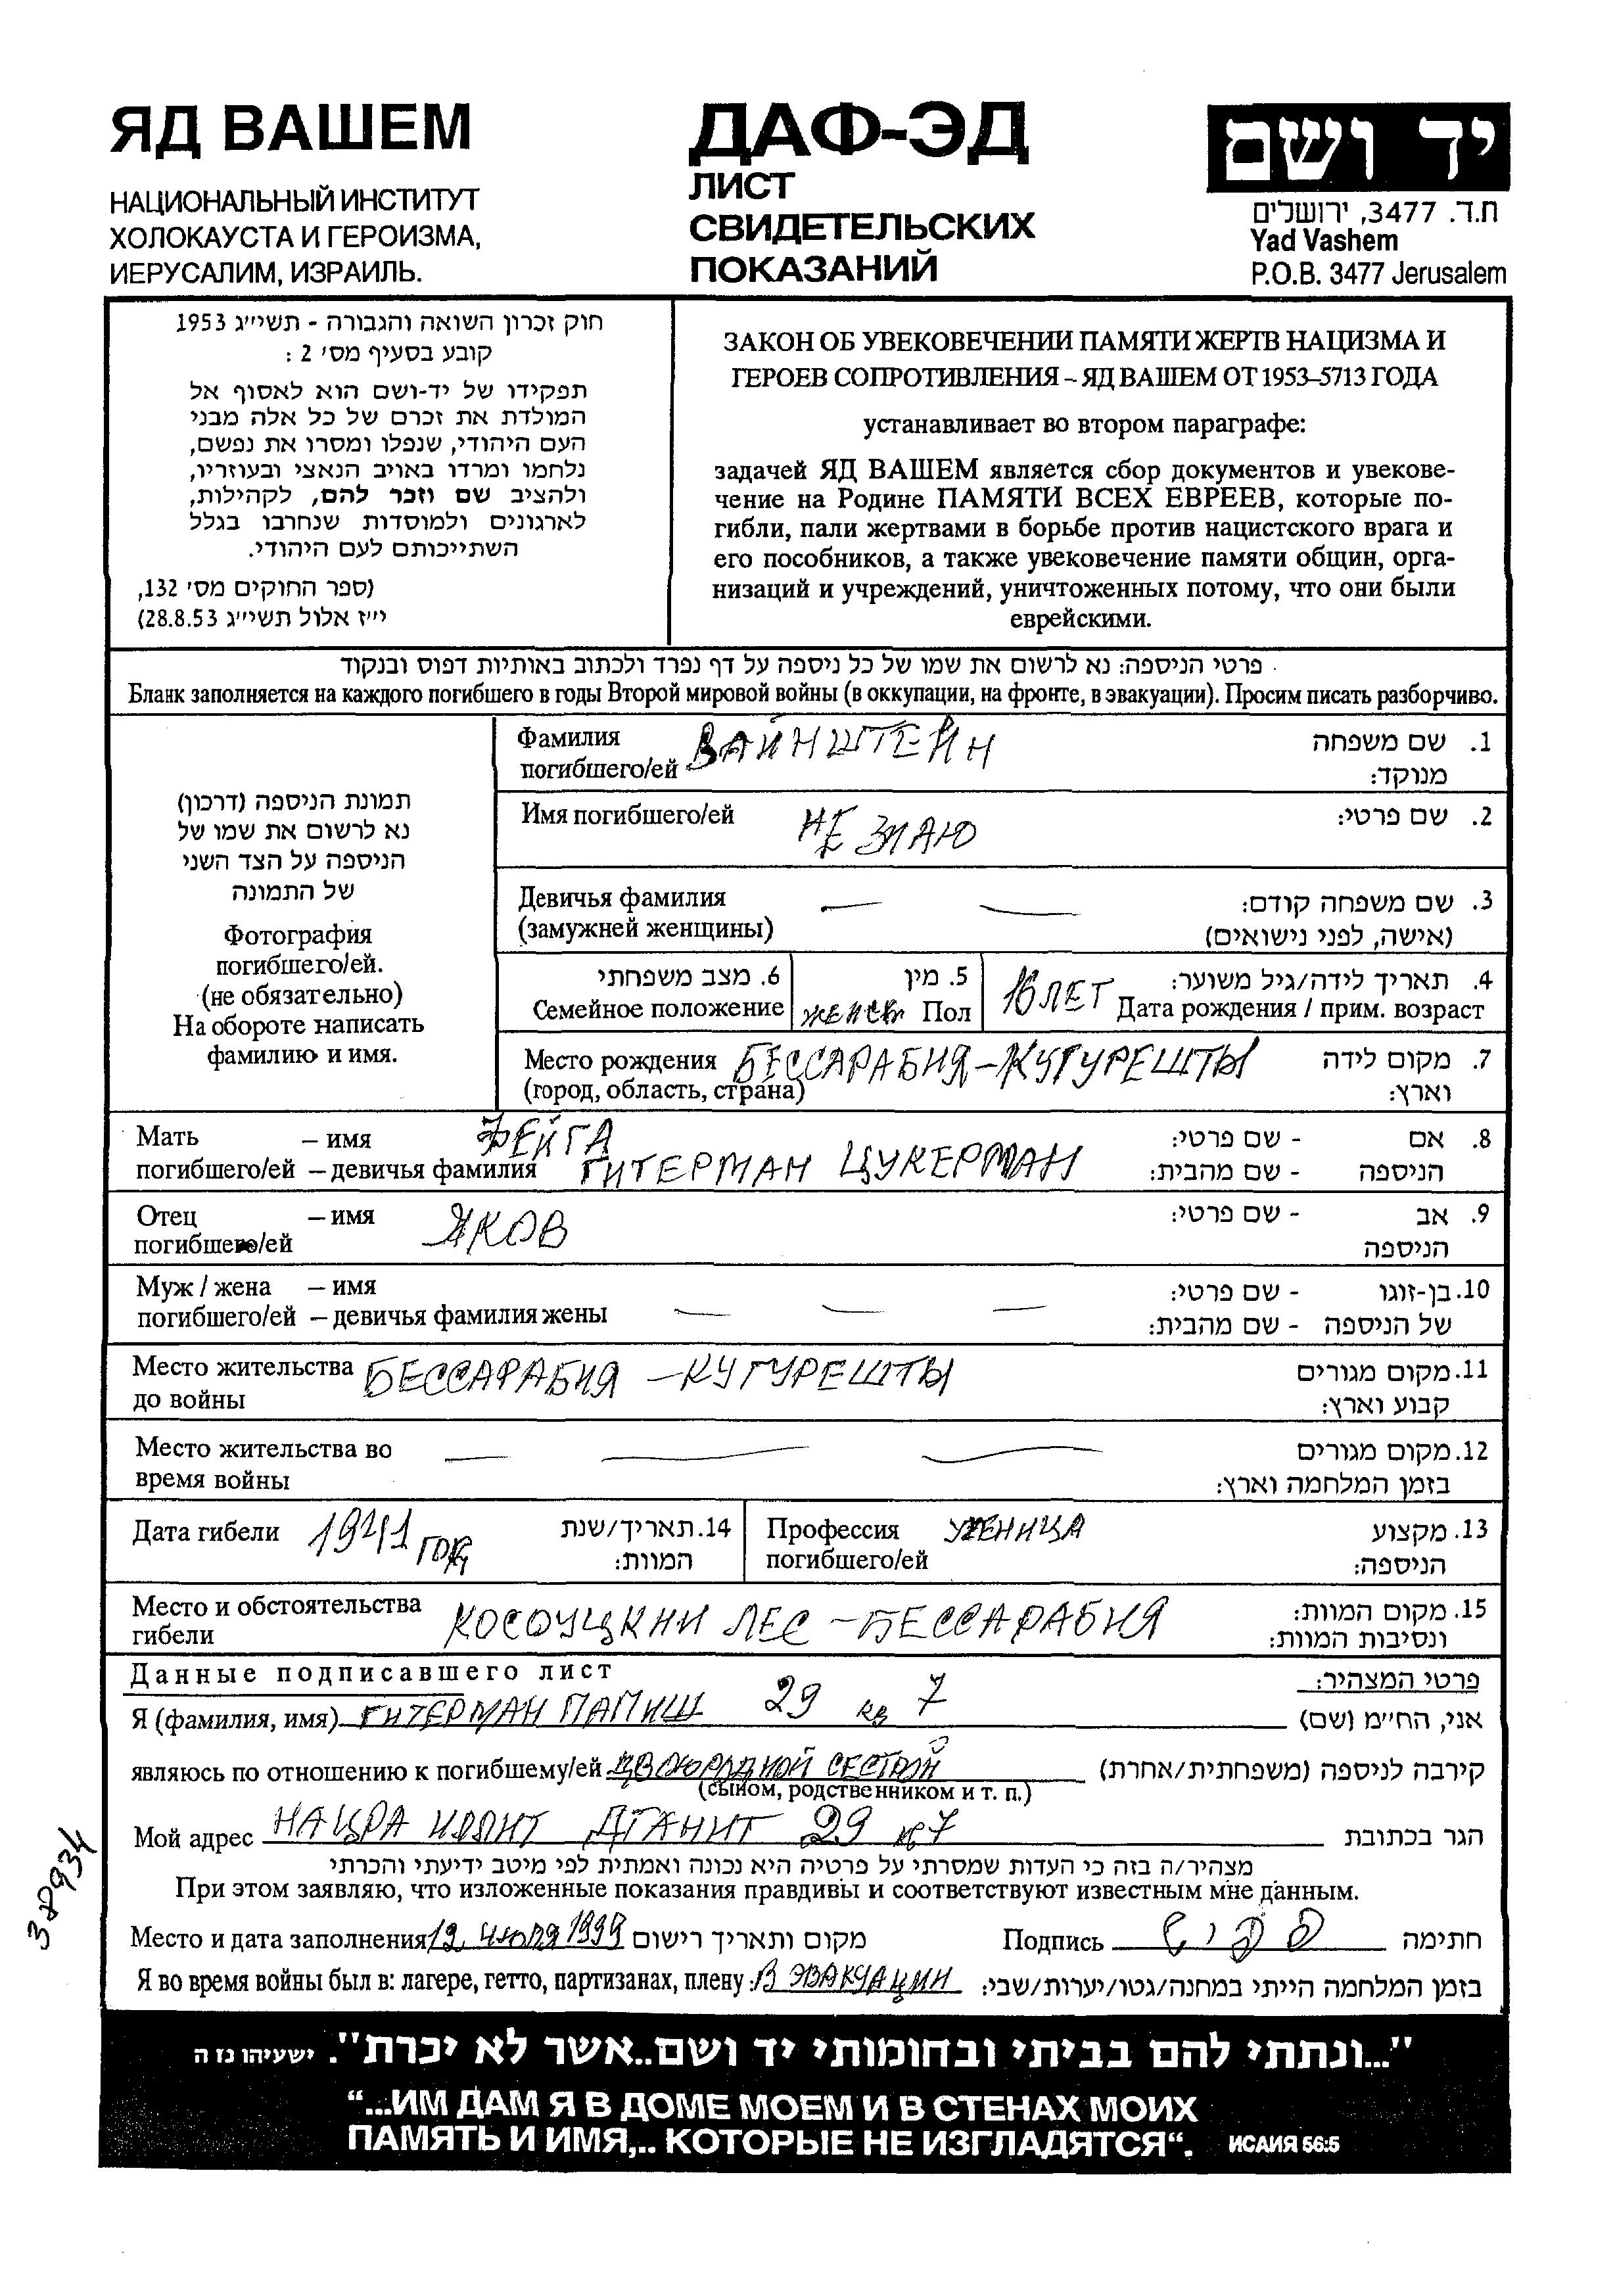 ЯД ВАШЕМ
НАЦИОНАЛЬНЫЙ ИНСТИТУТ
ХОЛОКАУСТА И ГЕРОИЗМА,
ИЕРУСАЛИМ, ИЗРАИЛЬ.
ДАФ-ЭД
ЛИСТ
СВИДЕТЕЛЬСКИХ
ПОКАЗАНИЙ
יד ושם
ת.ד. 3477, ירושלים
Yad Vashem
P.O.B. 3477 Jerusalem
חוק זכרון השואה והגבורה - תשי״ג 1953
קובע בסעיף מס׳ 2 :
תפקידו של יד-ושם הוא לאסוף אל
המולדת את זכרם של כל אלה מבני
העם היהודי, שנפלו ומסרו את נפשם,
נלחמו ומרדו באויב הנאצי ובעוזריו,
ולהציב שם וזכר להם, לקהילות,
לארגונים ולמוסדות שנחרבו בגלל
השתייכותם לעם היהודי.
(ספר החוקים מס׳ 132,
י״ז אלול תשי״ג 28.8.53)
ЗАКОН ОБ УВЕКОВЕЧЕНИИ ПАМЯТИ ЖЕРТВ НАЦИЗМА И
ГЕРОЕВ СОПРОТИВЛЕНИЯ – ЯД ВАШЕМ ОТ 1953–5713 ГОДА
устанавливает во втором параграфе:
задачей ЯД ВАШЕМ является сбор документов и увекове-
чение на Родине ПАМЯТИ ВСЕХ ЕВРЕЕВ, которые по-
гибли, пали жертвами в борьбе против нацистского врага и
его пособников, а также увековечение памяти общин, орга-
низаций и учреждений, уничтоженных потому, что они были
еврейскими.
פרטי הניספה: נא לרשום את שמו של כל ניספה על דף נפרד ולכתוב באותיות דפוס ובנקוד
Бланк заполняется на каждого погибшего в годы Второй мировой войны (в оккупации, на фронте, в эвакуации). Просим писать разборчиво.
תמונת הניספה (דרכון)
נא לרשום את שמו של
הניספה על הצד השני
של התמונה
Фотография
погибшего/ей.
(не обязательно)
На обороте написать
фамилию и имя.
Фамилия ВАЙНШТЕЙН 1. שם משפחה
погибшего/ей מנוקד:
Имя погибшего/ей НЕ ЗНАЮ 2. שם פרטי:
Девичья фамилия — — 3. שם משפחה קודם:
(замужней женщины) (אישה, לפני נישואים)
6. מצב משפחתי 5. מין 4. תאריך לידה/גיל משוער:
Семейное положение ЖЕНСК Пол 16 ЛЕТ Дата рождения / прим. возраст
Место рождения БЕССАРАБИЯ – КУГУРЕШТЫ 7. מקום לידה
(город, область, страна) וארץ:
Мать – имя ФЕЙГА 8. אם - שם פרטי:
погибшего/ей – девичья фамилия ГИТЕРМАН ЦУКЕРМАН הניספה - שם מהבית:
Отец – имя ЯКОВ 9. אב - שם פרטי:
погибшего/ей הניספה
Муж / жена – имя 10. בן-זוגו - שם פרטי:
погибшего/ей – девичья фамилия жены — — — של הניספה - שם מהבית:
Место жительства БЕССАРАБИЯ – КУГУРЕШТЫ 11. מקום מגורים
до войны קבוע וארץ:
Место жительства во — — — 12. מקום מגורים
время войны בזמן המלחמה וארץ:
Дата гибели 1941 ГОД 14. תאריך/שנת Профессия УЧЕНИЦА 13. מקצוע
המוות: погибшего/ей הניספה:
Место и обстоятельства КОСОУЦКИЙ ЛЕС – БЕССАРАБИЯ 15. מקום המוות:
гибели ונסיבות המוות:
Данные подписавшего лист פרטי המצהיר:
Я (фамилия, имя) ГИТЕРМАН ПАПИШ 29 кв 7 אני, החי״מ (שם)
являюсь по отношению к погибшему/ей ДВОЮРОДНОЙ СЕСТРОЙ קירבה לניספה (משפחתית/אחרת)
(сыном, родственником и т. п.)
Мой адрес НАЦРА ИЛЛИТ ДГАНИТ 29 кв 7 הגר בכתובת
מצהיר/ה בזה כי העדות שמסרתי על פרטיה היא נכונה ואמתית לפי מיטב ידיעתי והכרתי
При этом заявляю, что изложенные показания правдивы и соответствуют известным мне данным.
Место и дата заполнения 12 ИЮЛЯ 1999 מקום ותאריך רישום Подпись חתימה
Я во время войны был в: лагере, гетто, партизанах, плену: В ЭВАКУАЦИИ בזמן המלחמה הייתי במחנה/גטו/יערות/שבי:
"...ונתתי להם בביתי ובחומותי יד ושם..אשר לא יכרת". ישעיהו נז ה
“...ИМ ДАМ Я В ДОМЕ МОЕМ И В СТЕНАХ МОИХ
ПАМЯТЬ И ИМЯ,.. КОТОРЫЕ НЕ ИЗГЛАДЯТСЯ“. ИСАИЯ 56:5